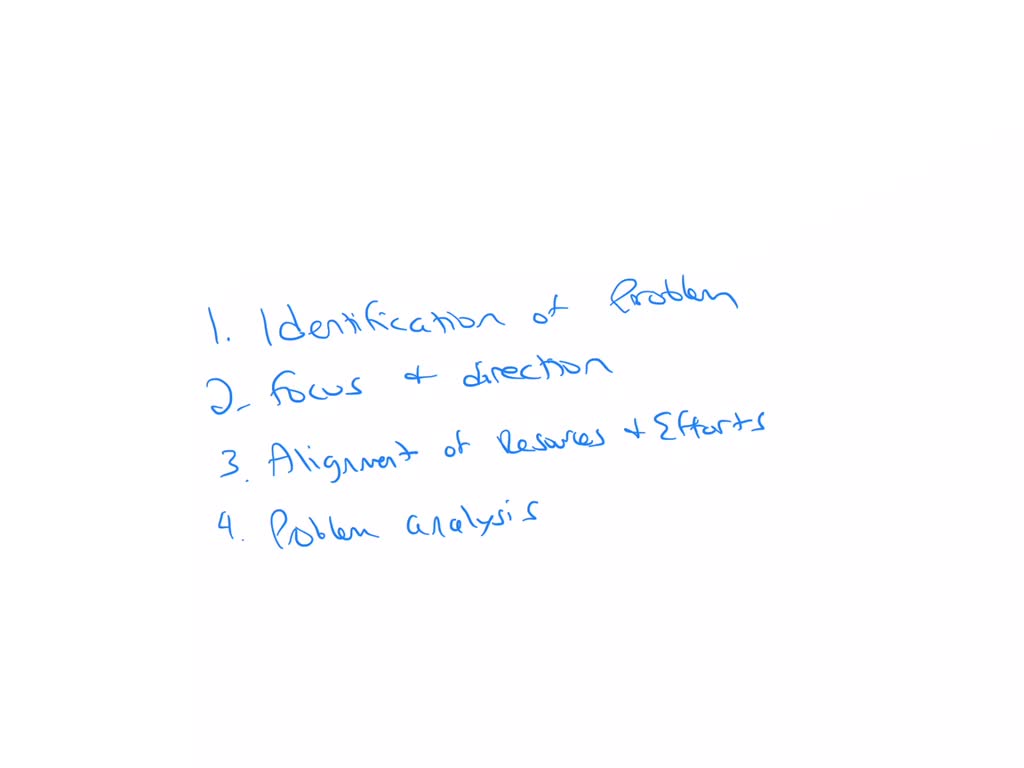 1. Identification of Problem
2. focus + direction
3. Alignment of Resources + Efforts
4. Problem analysis